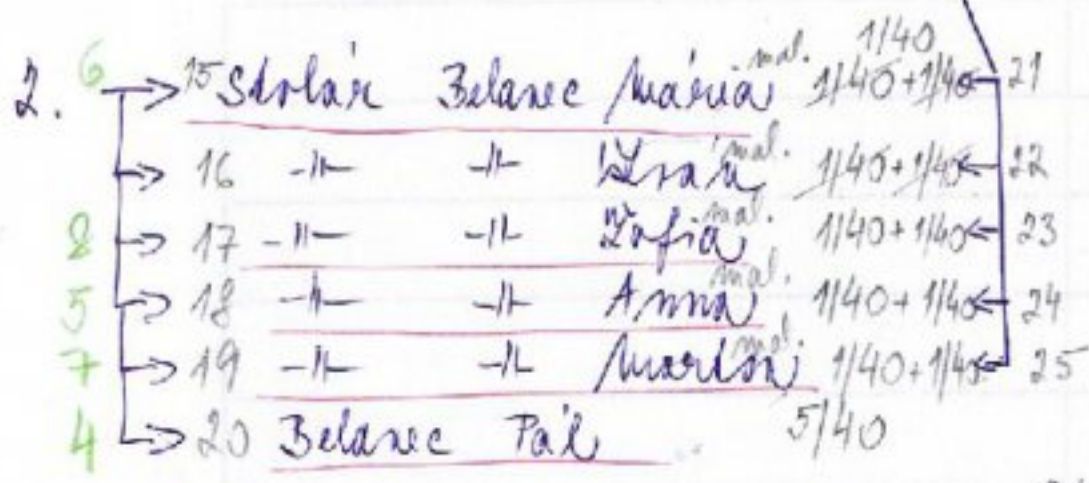 1/40
2. 6 15 Stolár Belanec Mária mal. 1/40+1/40 21
16 -||- -||- mal. 1/40+1/40 22
8 17 -||- -||- Žofia mal. 1/40+1/40 23
5 18 -||- -||- Anna mal. 1/40+1/40 24
7 19 -||- -||- mal. 1/40+1/40 25
4 20 Belanec Pál 5/40